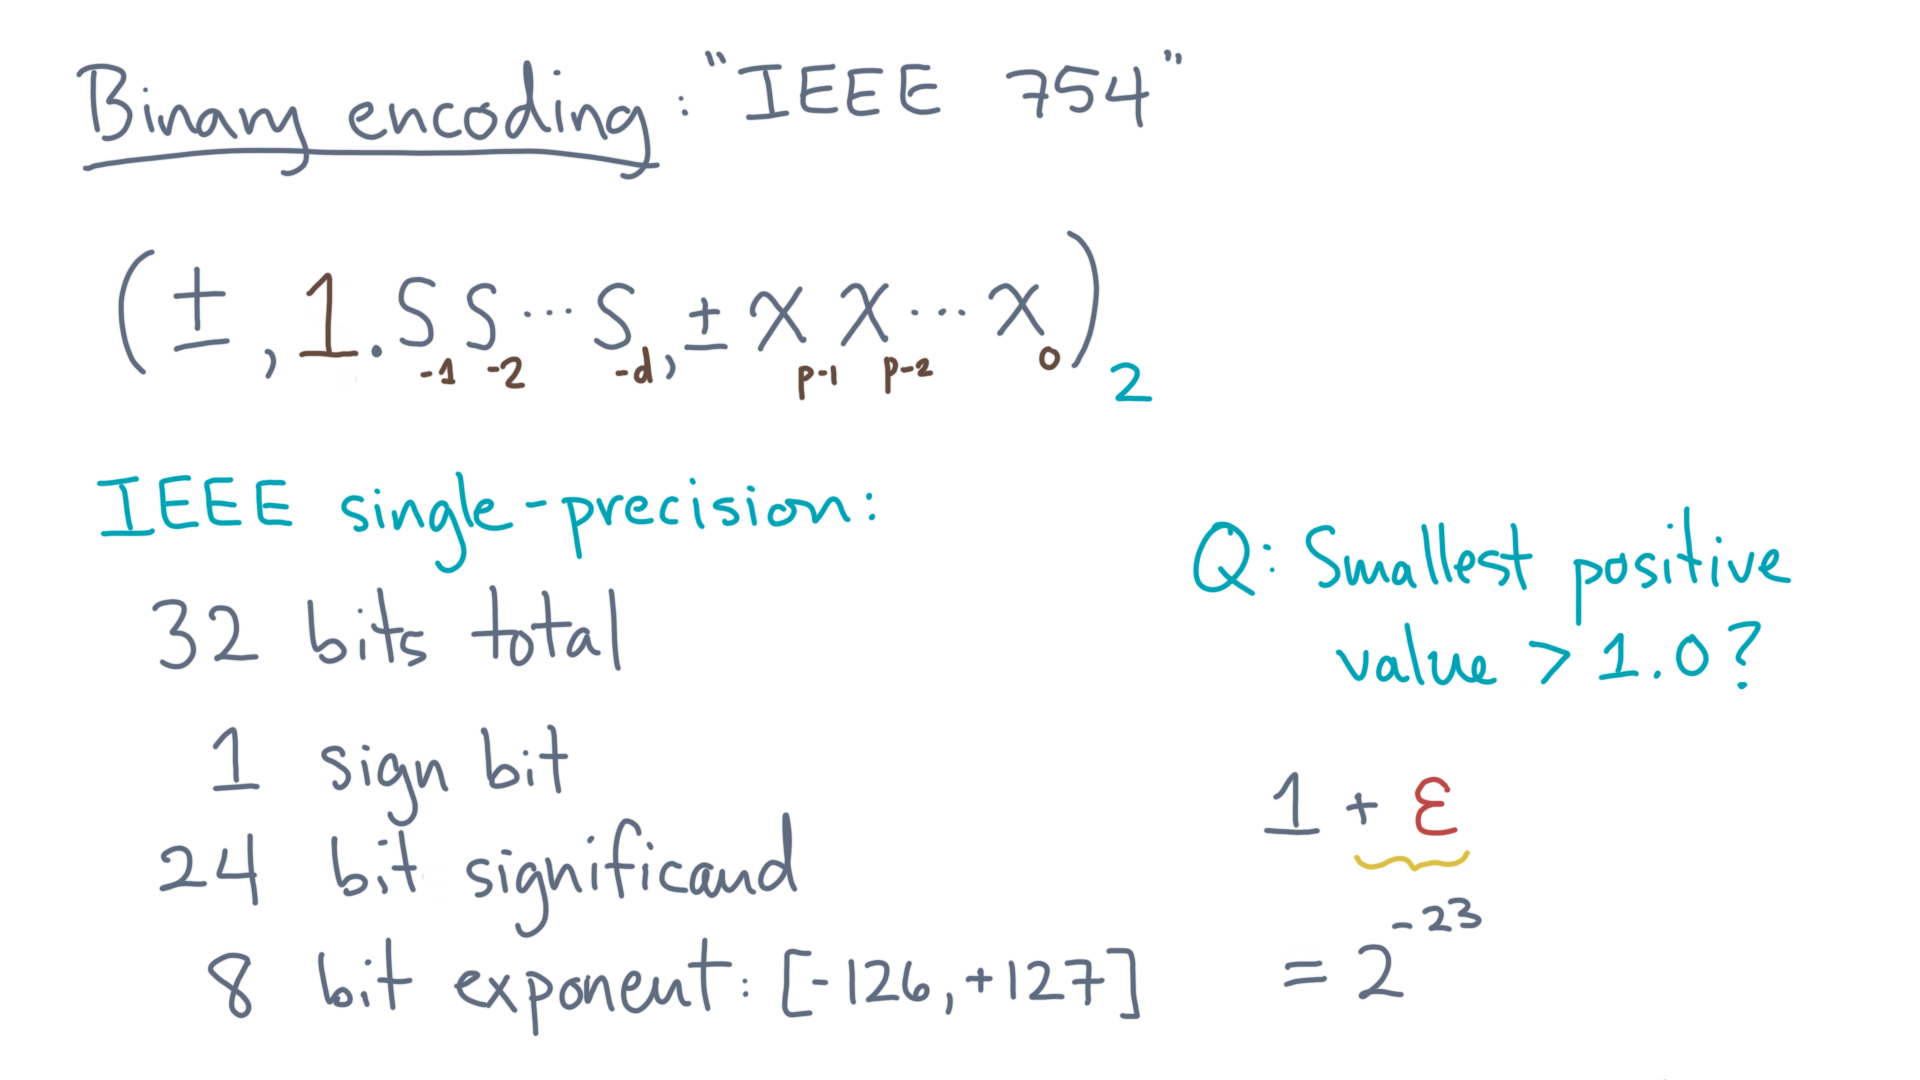 Binary encoding: "IEEE 754"
(±, 1.S₋₁S₋₂···S₋d, ±xₚ₋₁xₚ₋₂···x₀)₂
IEEE single-precision:
32 bits total
1 sign bit
24 bit significand
8 bit exponent: [-126, +127]
Q: Smallest positive
value > 1.0?
1 + ε
= 2⁻²³